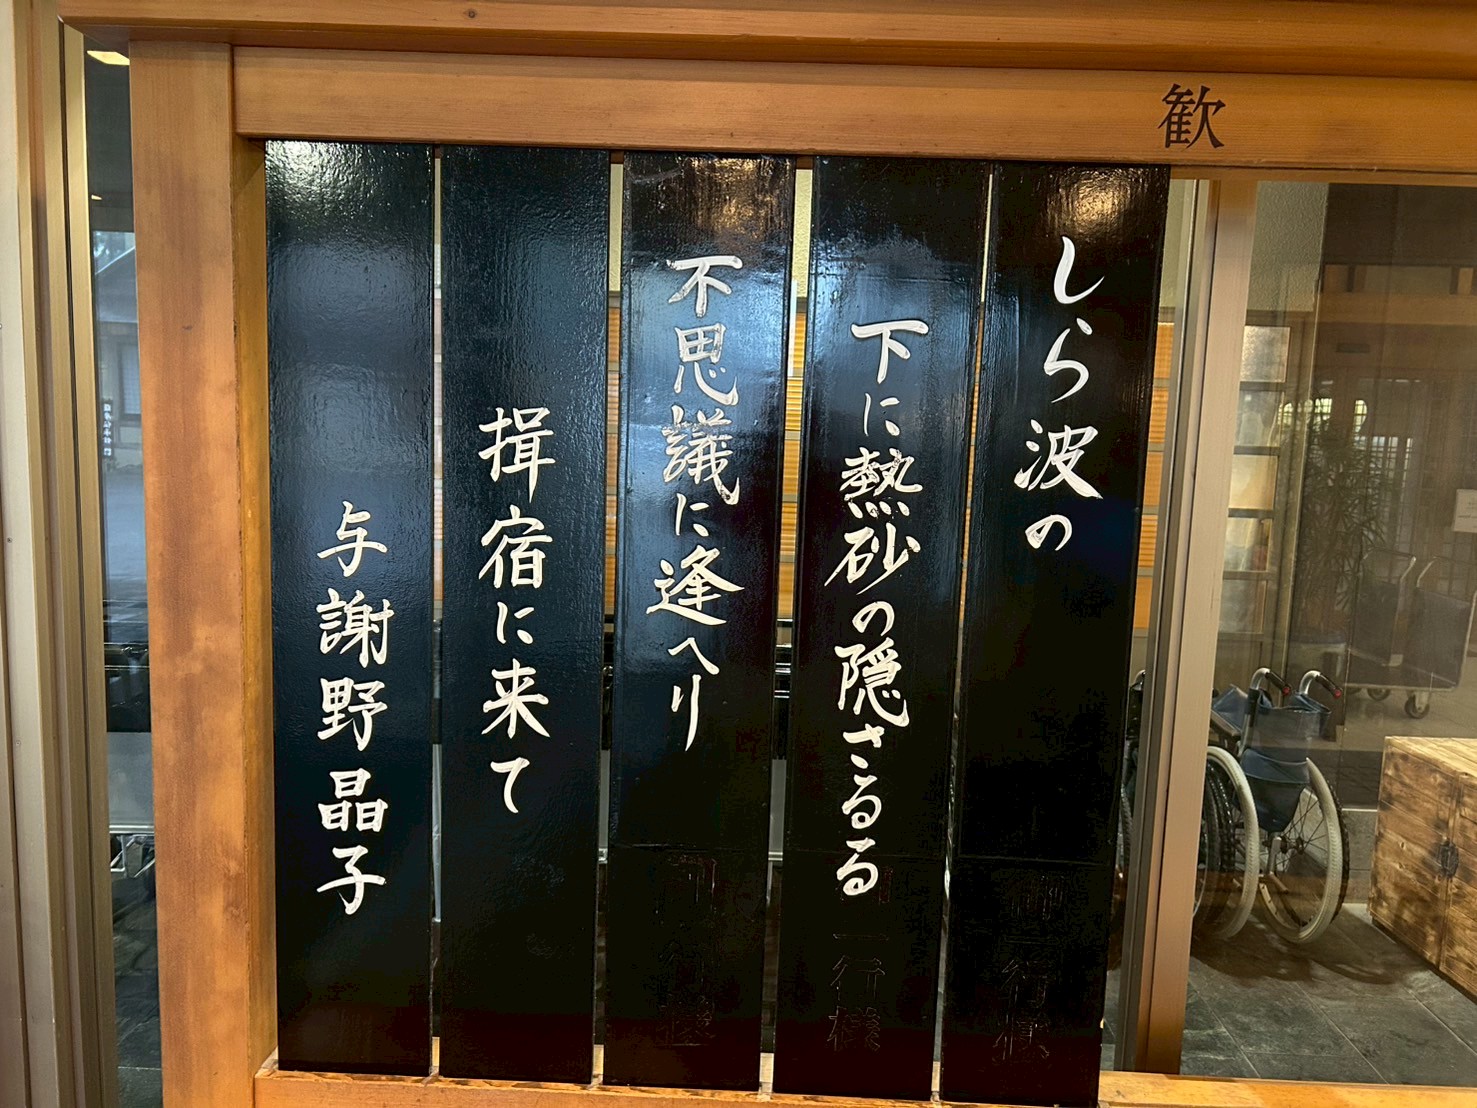 歓
しら波の
下に熱砂の隠さるる
不思議に逢へり
揖宿に来て
与謝野晶子
御一行様
御一行様
御一行様